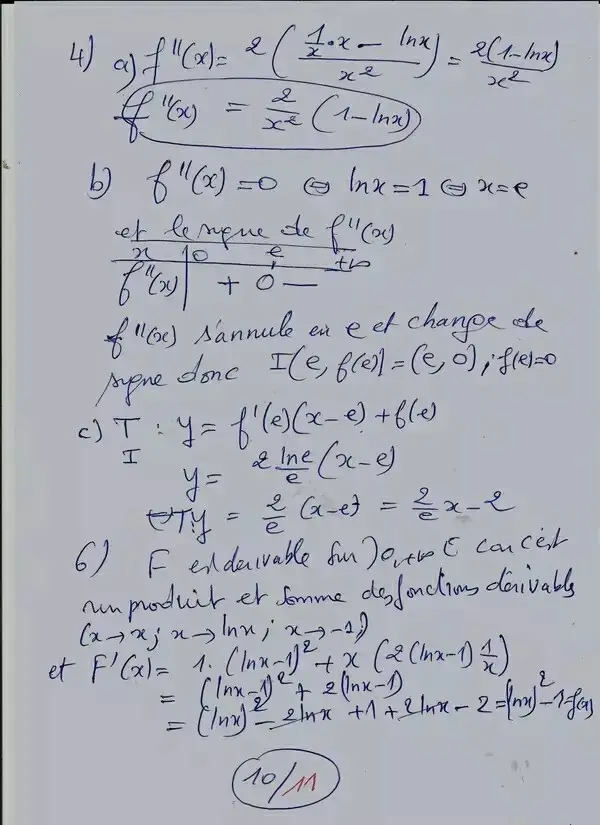 4) a) f''(x) = 2 ( (1/x · x - lnx) / x² ) = 2(1-lnx) / x²
f''(x) = 2/x² (1-lnx)
b) f''(x) = 0 ⇔ lnx = 1 ⇔ x = e
et le signe de f''(x)
x | 0 e +∞
f''(x) | + 0 -
f''(x) s'annule en e et change de
signe donc I(e, f(e)) = (e, 0) ; f(e)=0
c) T : y = f'(e)(x-e) + f(e)
I
y = 2 lne/e (x-e)
T: y = 2/e (x-e) = 2/e x - 2
6) F est dérivable sur ]0,+∞[ car c'est
un produit et somme des fonctions dérivables
(x→x ; x→lnx ; x→-1)
et F'(x) = 1. (lnx-1)² + x (2(lnx-1) 1/x)
= (lnx-1)² + 2(lnx-1)
= (lnx)² - 2lnx + 1 + 2lnx - 2 = (lnx)² - 1 = f(x)
10/11